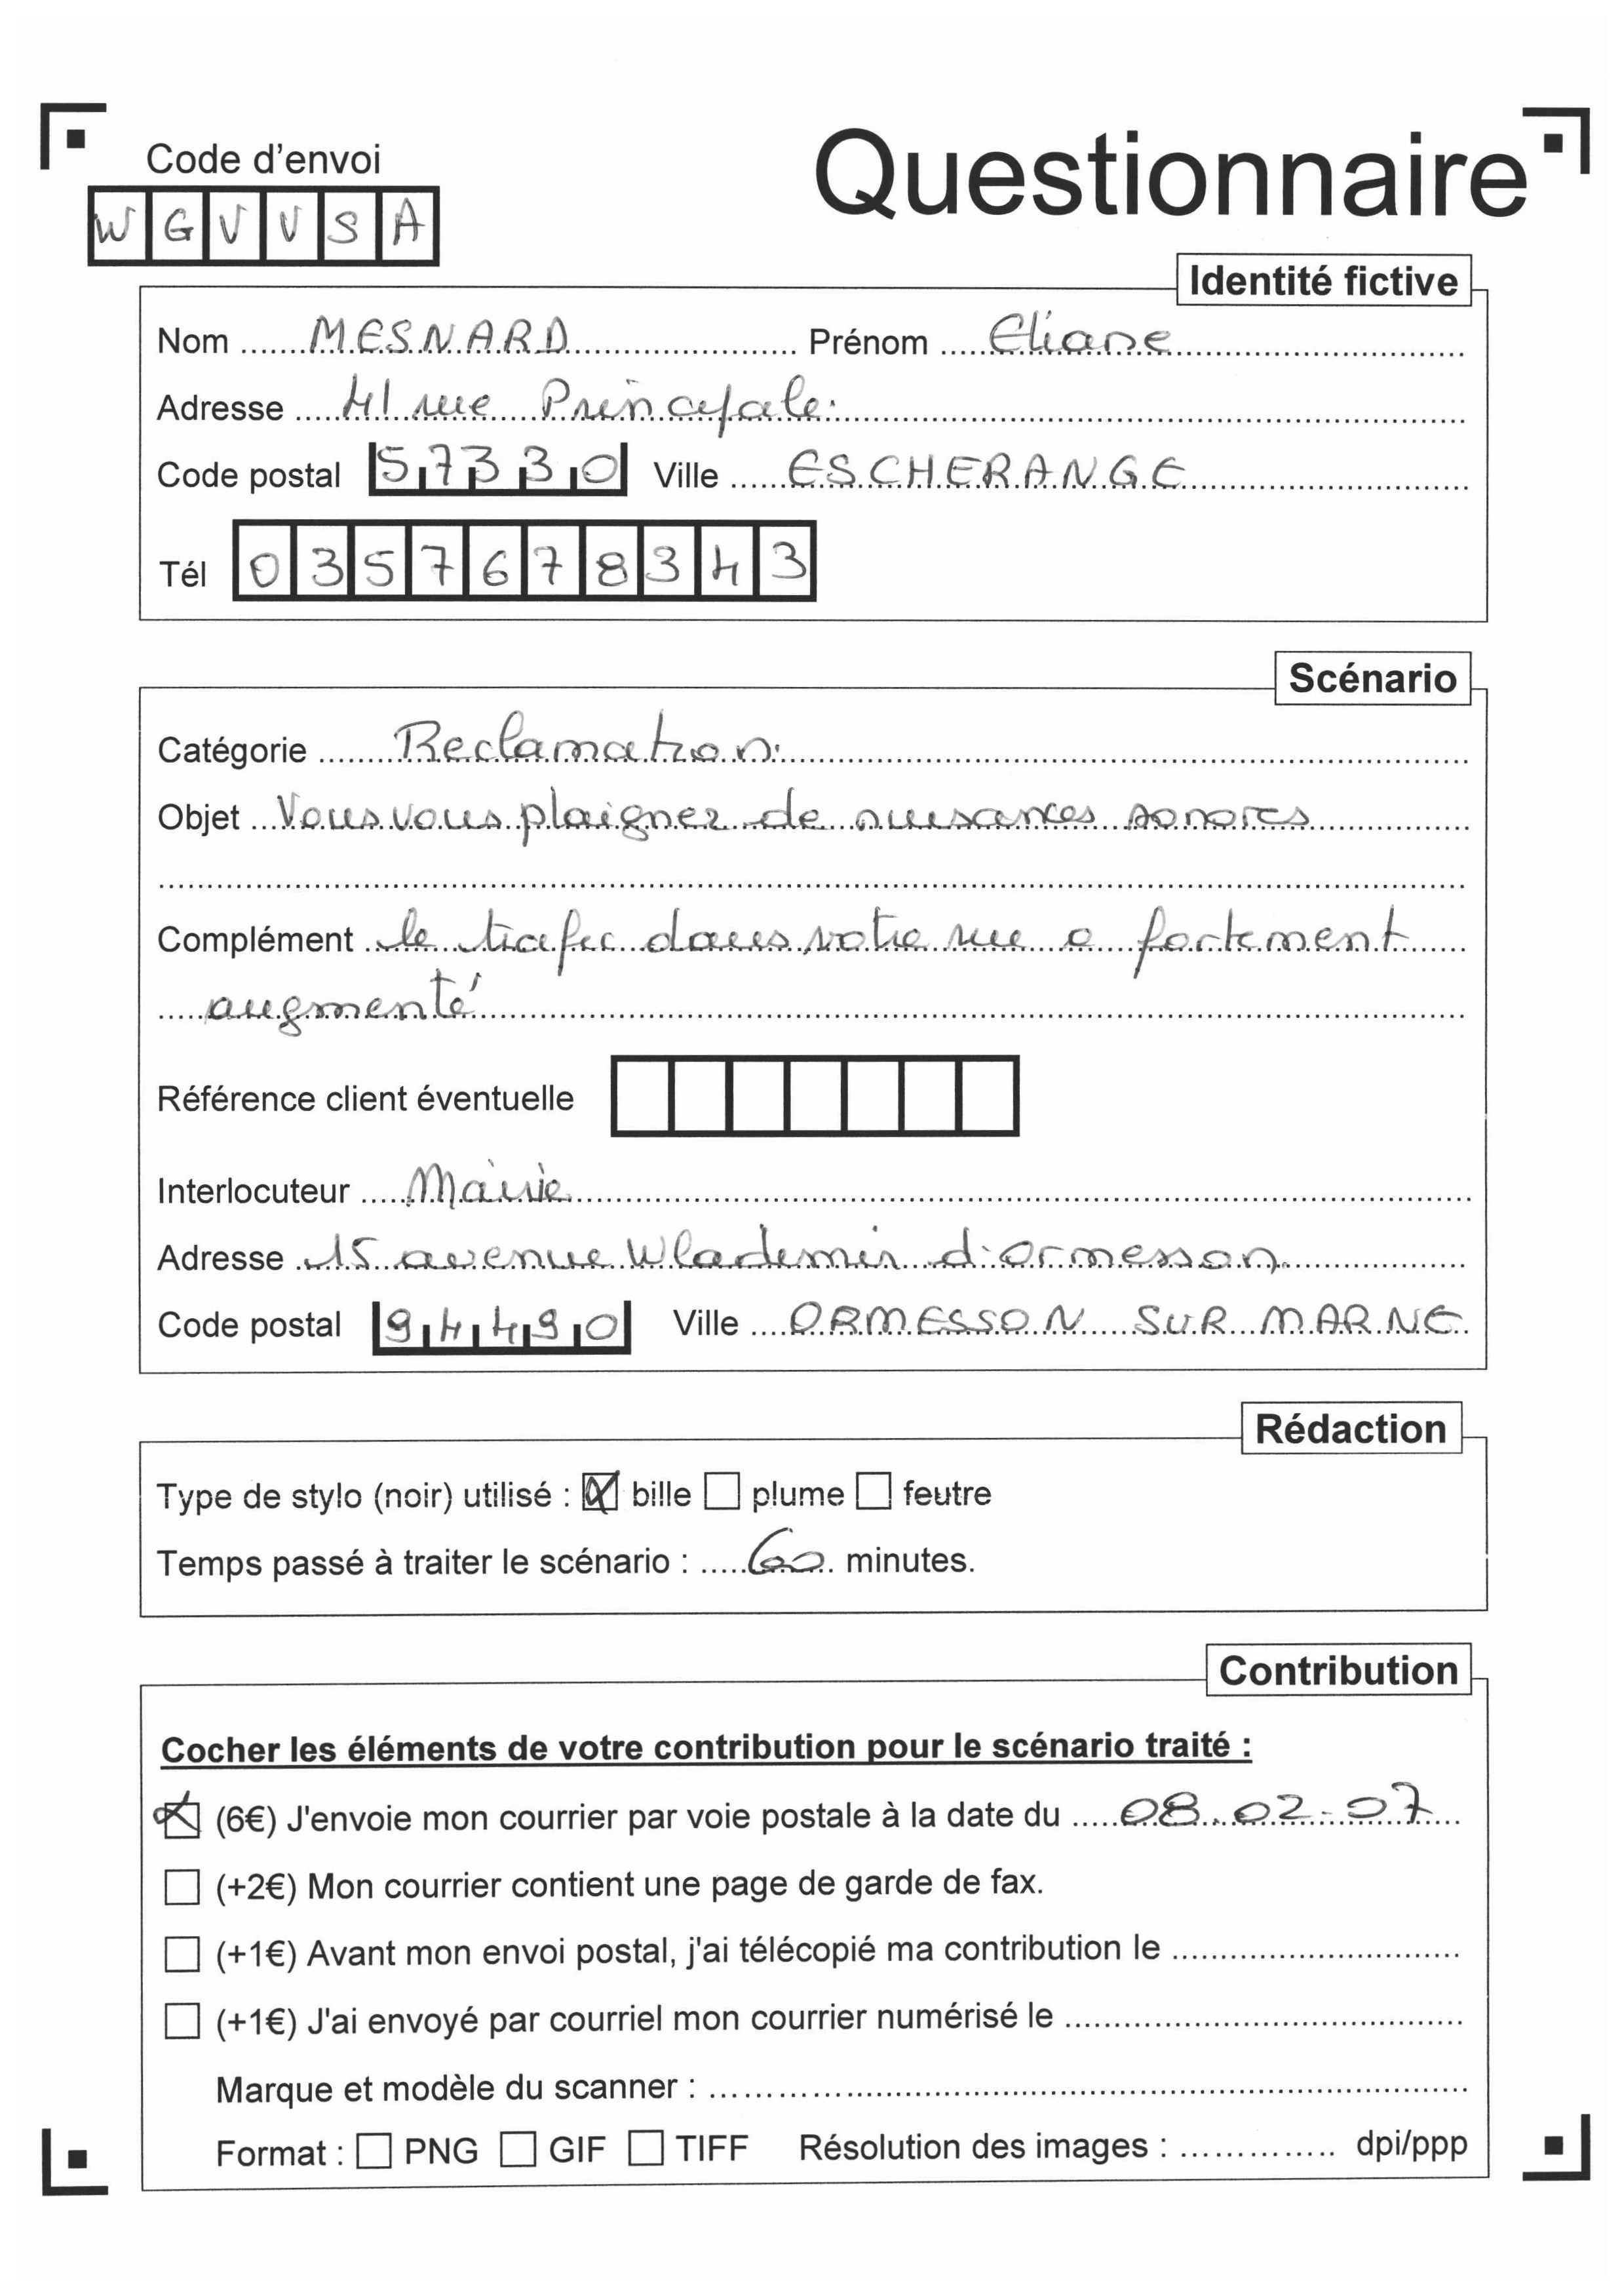 Code d'envoi
Questionnaire
W G V V S A
Identité fictive
Nom MESNARD Prénom Eliane
Adresse 41 rue Principale
Code postal 57330 Ville ESCHERANGE
Tél 0357678343
Scénario
Catégorie Reclamation
Objet Vous vous plaignez de nuisances sonores
Complément le trafic dans votre rue a fortement
augmenté
Référence client éventuelle
Interlocuteur Mairie
Adresse 15 avenue Wlademir d'ormesson
Code postal 94490 Ville ORMESSON SUR MARNE
Rédaction
Type de stylo (noir) utilisé : bille plume feutre
Temps passé à traiter le scénario : 60 minutes.
Contribution
Cocher les éléments de votre contribution pour le scénario traité :
(6€) J'envoie mon courrier par voie postale à la date du 08.02.07
(+2€) Mon courrier contient une page de garde de fax.
(+1€) Avant mon envoi postal, j'ai télécopié ma contribution le
(+1€) J'ai envoyé par courriel mon courrier numérisé le
Marque et modèle du scanner :
Format : PNG GIF TIFF Résolution des images : dpi/ppp